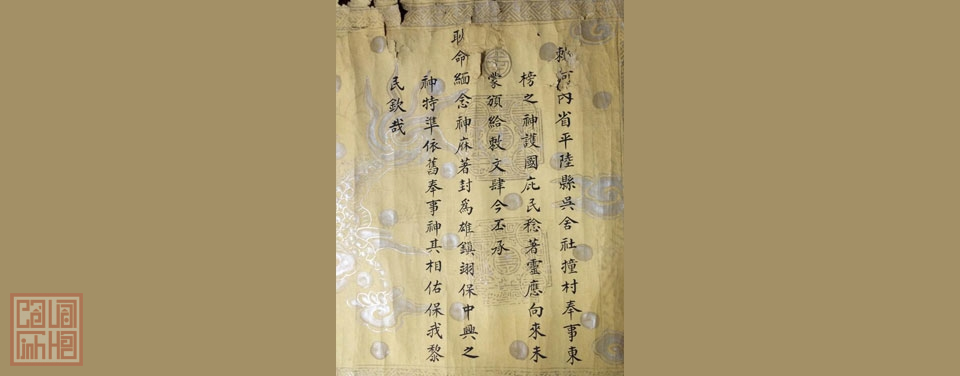 敕河內省平陸縣吳舍社撞村奉事東
榜之神護國庇民稔著靈應向來未
蒙頒給敕文肆今丕承
耿命緬念神庥著封爲雄鎮翊保中興之
神特準依舊奉事神其相佑保我黎
民欽哉